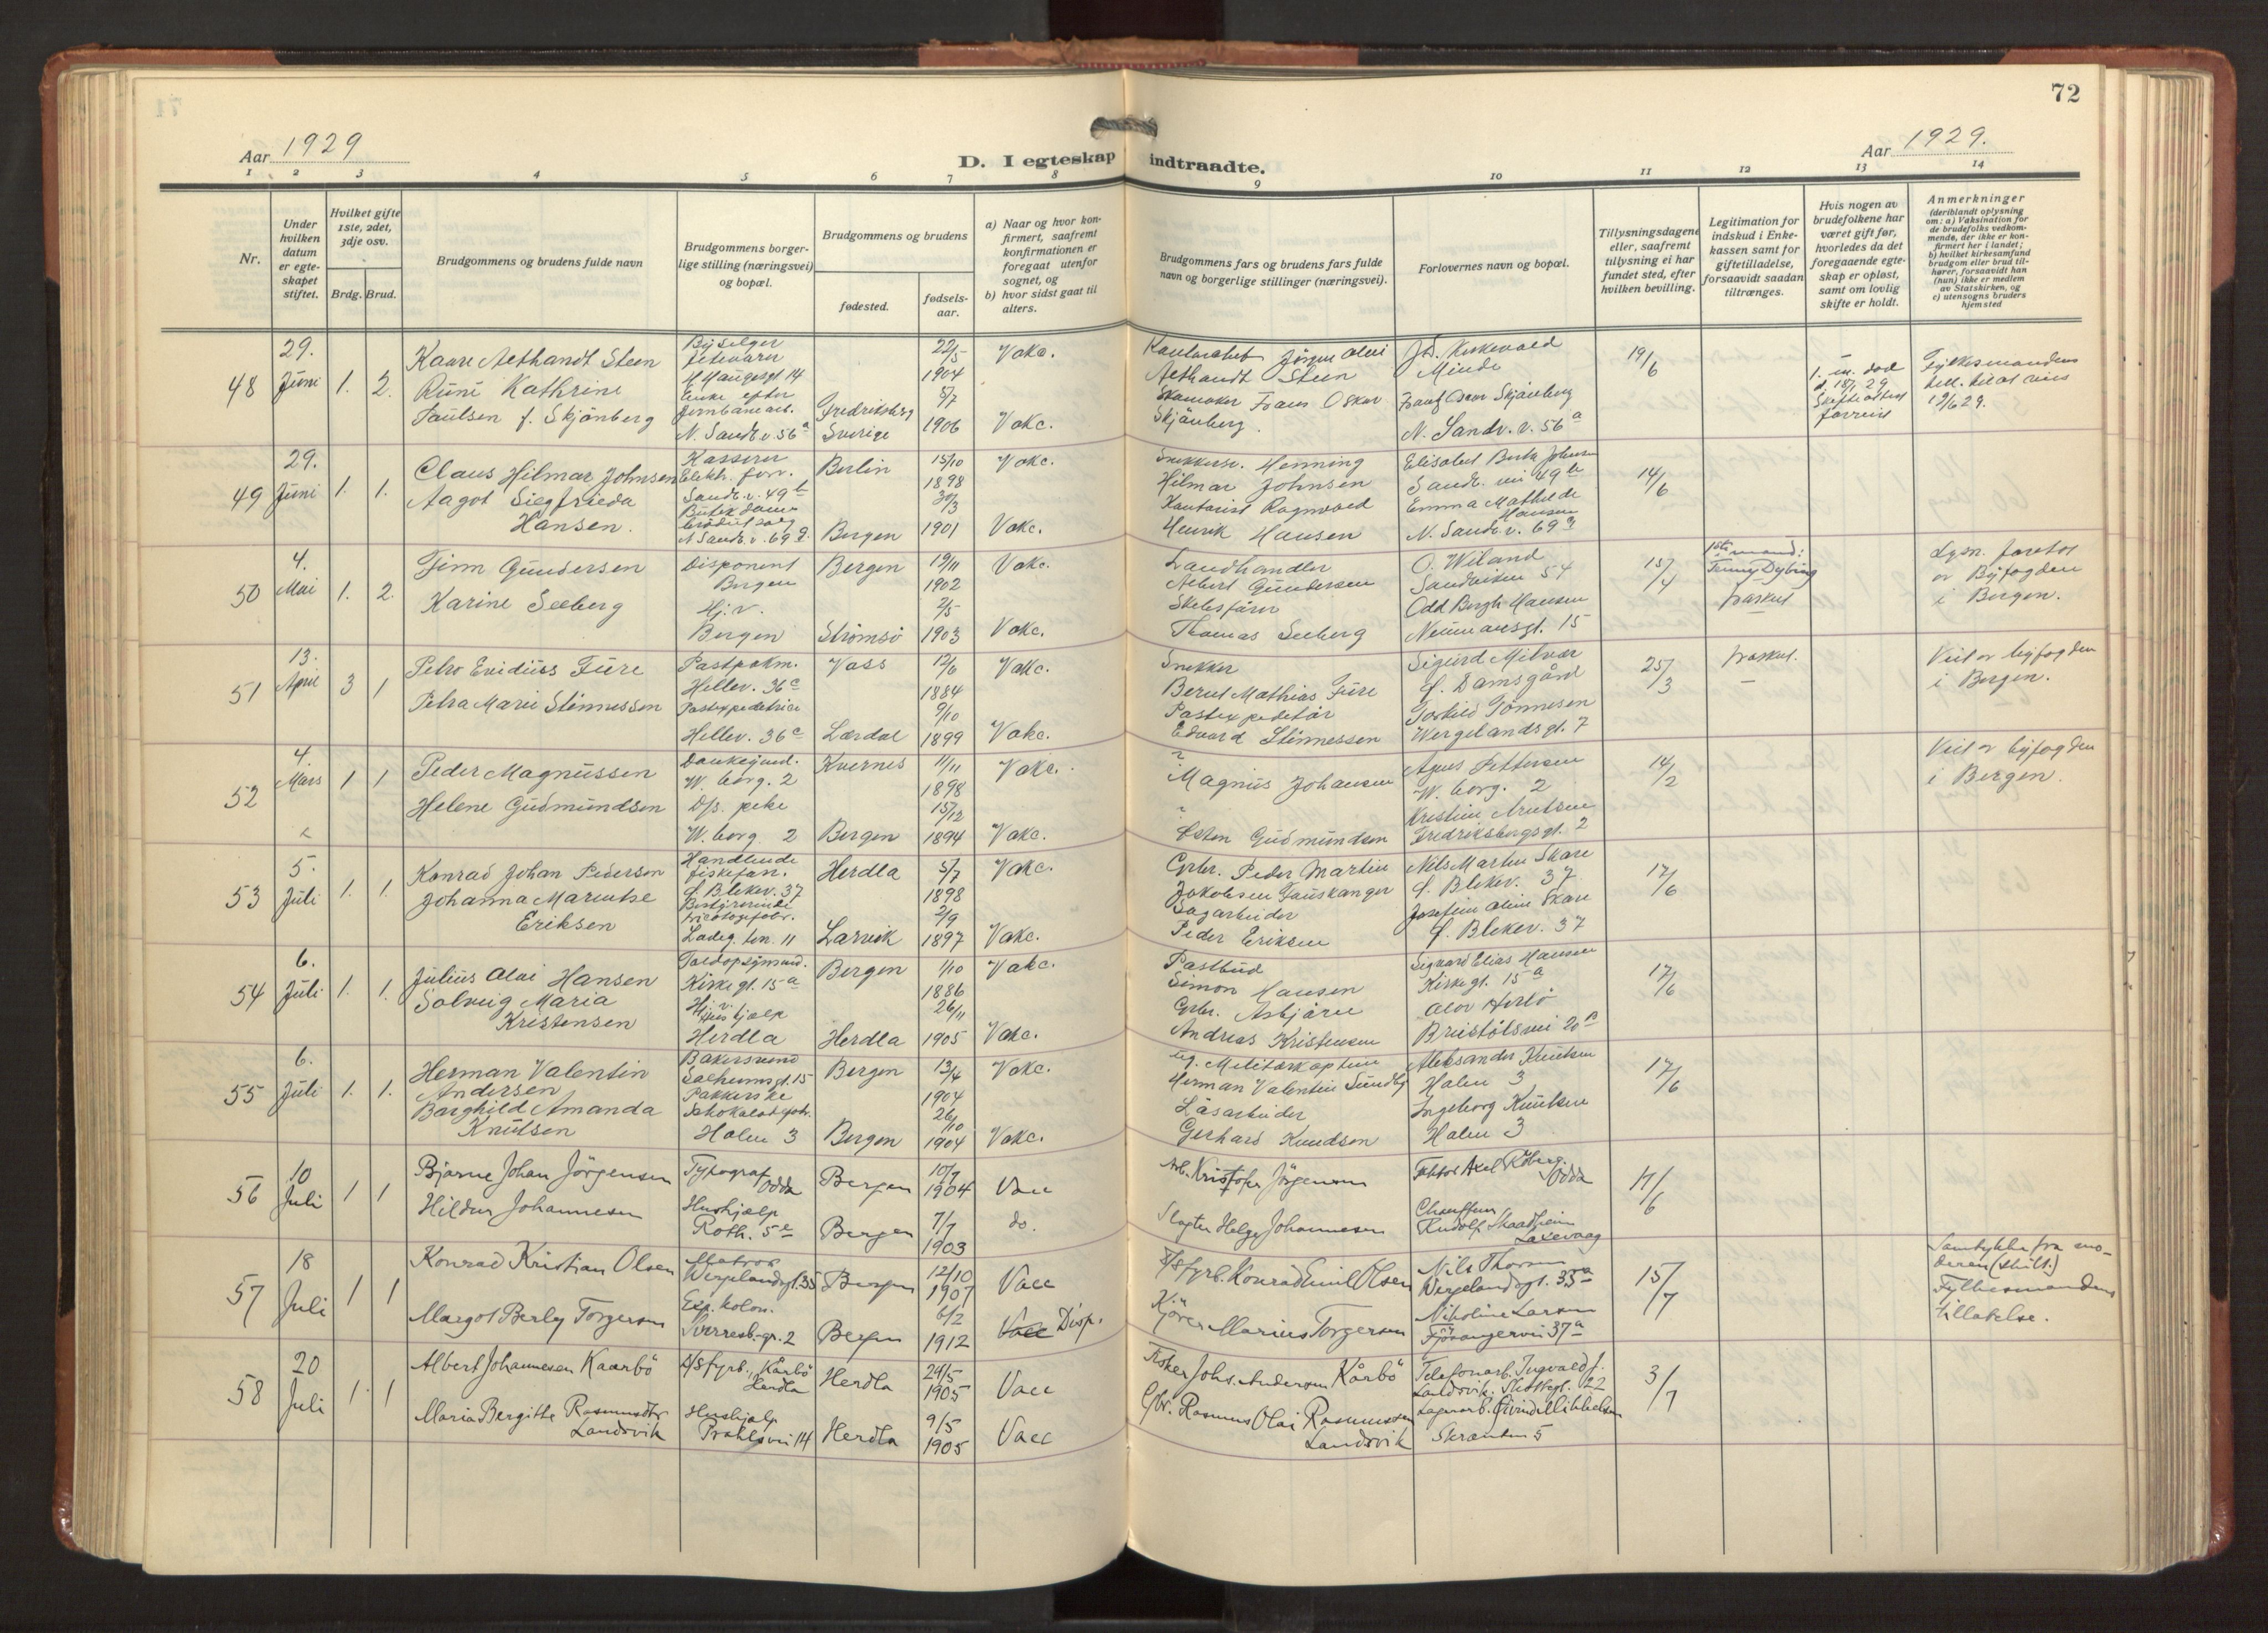 72
Aar 1929
D. I egteskap indtraadte.
Aar 1929.
1 2 3 4 5 6 7 8 9 10 11 12 13 14
Nr.
Under hvilken datum er egteskapet stiftet.
Hvilket gifte 1ste, 2det, 3dje osv.
Brdg. Brud.
Brudgommens og brudens fulde navn
Brudgommens borgerlige stilling (næringsvei) og bopæl.
Brudgommens og brudens
fødested.
fødselsaar.
a) Naar og hvor konfirmert, saafremt konfirmationen er foregaat utenfor sognet, og
b) hvor sidst gaat til alters.
Brudgommens fars og brudens fars fulde navn og borgerlige stillinger (næringsvei).
Forlovernes navn og bopæl.
Tillysningsdagene eller, saafremt tillysning ei har fundet sted, efter hvilken bevilling.
Legitimation for indskud i Enkekassen samt for giftetilladelse, forsaavidt saadan tiltrænges.
Hvis nogen av brudefolkene har været gift før, hvorledes da det foregaaende egteskap er opløst, samt om lovlig skifte er holdt.
Anmerkninger
(deriblandt oplysning om: a) Vaksination for de brudefolks vedkommende, der ikke er konfirmert her i landet; b) hvilket kirkesamfund brudgom eller brud tilhører, forsaavidt han (hun) ikke er medlem av Statskirken, og c) utensogns bruders hjemsted
48 29. Juni 1. 2.
Kaare Aethandt Steen
Runi Kathrine
Paulsen f. Skjönberg
H Haugesgt 14
Enke efter
N. Sandv. v. 56a
Fredriksberg
Sverige
22/5 1904
5/7 1906
Vakc.
Vakc.
Jörgen Olai
Aethandt Steen
Skomaker Frans Oskar
Skjönberg
Minde
Frantz Oscar Skjönberg
N. Sandv. v. 56a
19/6
1. m. død
Fylkesmandens
19/6 29.
49 29. Juni 1. 1.
Claus Hilmar Johnsen
Aagot Siegfrieda
Hansen.
Kasserer
Elektr. forr.
Sandv. v. 49b
N Sandv. v. 69a
Berlin
Bergen
15/10 1898
30/3 1901
Vakc.
Vakc.
Henning
Hilmar Johnsen
Kontorist Ragnvald
Henrik Hansen
Elisabet Berta Johnsen
Sandv. vei 49b
Emma Mathilde
Hansen
N. Sandv. v. 69a
14/6
50 4. Mai 1. 2.
Finn Gundersen
Karine Seeberg
Disponent
Bergen
Hj. v.
Bergen
Bergen
Strömsö
19/11 1902
2/5 1903
Vakc.
Vakc.
Landhandler
Albert Gundersen
Skibsförer
Thomas Seeberg
O. Wiland
Sandviken 54
Odd Bergh Hansen
Neumansgt. 15
15/4
1ste mand:
Fenny Dybing
fraskilt
Lysn. foretat
av Byfogden
i Bergen.
51 13. April 3 1
Petro Eviduss Fure
Petra Marie Stinnessen
Postfuldm.
Hellev. 36c
Postexpeditrice
Hellev. 36c
Voss
Lærdal
12/6 1884
9/10 1899
Vakc.
Vakc.
Snekker
Bernt Mathias Fure
Postexpeditör
Edvard Stinnessen
Sigurd Milvær
d. Damsgård
Torhild Tönnesen
Wergelandsgt. 7
25/3
fraskil.
Viet av byfogden
i Bergen.
52 4. Mars 1 1
Peder Magnussen
Helene Gudmundsen
W. borg. 2
W. borg. 2
Kvernes
Bergen
11/11 1898
15/12 1894
Vakc.
Vakc.
?
Magnus Johansen
?
Østen Gudmundsen
Agnes Pettersen
W. borg. 2
Kristine Arntsen
Fredriksbergsgt. 2
14/2
Viet av byfogden
i Bergen.
53 5. Juli 1. 1.
Konrad Johan Pedersen
Johanna Marentse
Eriksen
Handlende
d. Blekev. 37
Bestyrerinde
Ladeg. ten. 11
Herdla
Larvik
5/7 1898
2/9 1897
Vakc.
Vakc.
Grbr. Peder Martin
Jakobsen Fauskanger
Sagarbeider
Peder Eriksen
Nils Martin Skare
d. Blekev. 37
Josefine Oline Skare
d. Blekev. 37
17/6
54 6. Juli 1. 1.
Julius Olai Hansen
Solveig Maria
Kristensen
Toldopsynsmd.
Kirkegt. 15a
Hj. v.
Hushjælp
Herdla
Bergen
Herdla
1/10 1886
26/11 1905
Vakc.
Vakc.
Postbud
Simon Hansen
Grbr. Asbjörn
Andreas Kristensen
Sigvard Elias Hansen
Kirkegt. 15a
Olav Herlö
17/6
55 6. Juli 1. 1.
Herman Valentin
Andersen
Borghild Amanda
Knutsen
Bakersvend
Solheimsgt. 15
Pakkerske
Holen 3
Bergen
Bergen
13/4 1904
26/10 1904
Vakc.
Vakc.
ug. Militærkaptein
Herman Valentin Sundby
Låsarbeider
Gerhard Knudsen
Aleksander Knutsen
Holen 3
Ingeborg Knutsen
Holen 3
17/6
56 10 Juli 1 1
Bjarne Johan Jörgensen
Hildur Johannesen
Typograf
Odda
Hushjælp
Roth. 5e
Bergen
Bergen
10/7 1904
7/7 1903
Vacc
do.
Arb. Kristofer Jörgensen
Slagter Helge Johannesen
Faktor Axel Koberg
Odda
Chauffeur
Rudolf Skaathein
Laxevaag
17/6
57 18 Juli 1 1
Konrad Kristian Olsen
Margot Berly Torgersen
Matros
Wergelandsgt. 35
Exp. kolon.
Sverresb.gr. 2
Bergen
Bergen
12/10 1907
6/2 1912
Vacc
Vacc Disp.
S/S fyrb. Konrad Emil Olsen
Kjörer Marius Torgersen
Nils Thorsen
Wergelandsgt. 35a
Nikoline Larsen
Fjösangervei 37a
15/7
Samtykke fra moderen (skilt.)
Fylkesmandens
tillatelse.
58 20 Juli 1 1
Albert Johannesen Kaarbö
Maria Bergitte Rasmusdtr
Landsvik
S/S fyrb., Kårbö
Herdla
Hushjælp
Prahlsvei 14
Herdla
Herdla
24/5 1905
9/5 1905
Vacc
Vacc
Fisker Johs. Andersen Kårbö
Gbr. Rasmus Olai Rasmussen
Landsvik
Telefonarb. Ingvald J.
Landsvik. Skottegt. 22
Lagerarb. Eivind Mikkelsen
Skranten 5
3/7